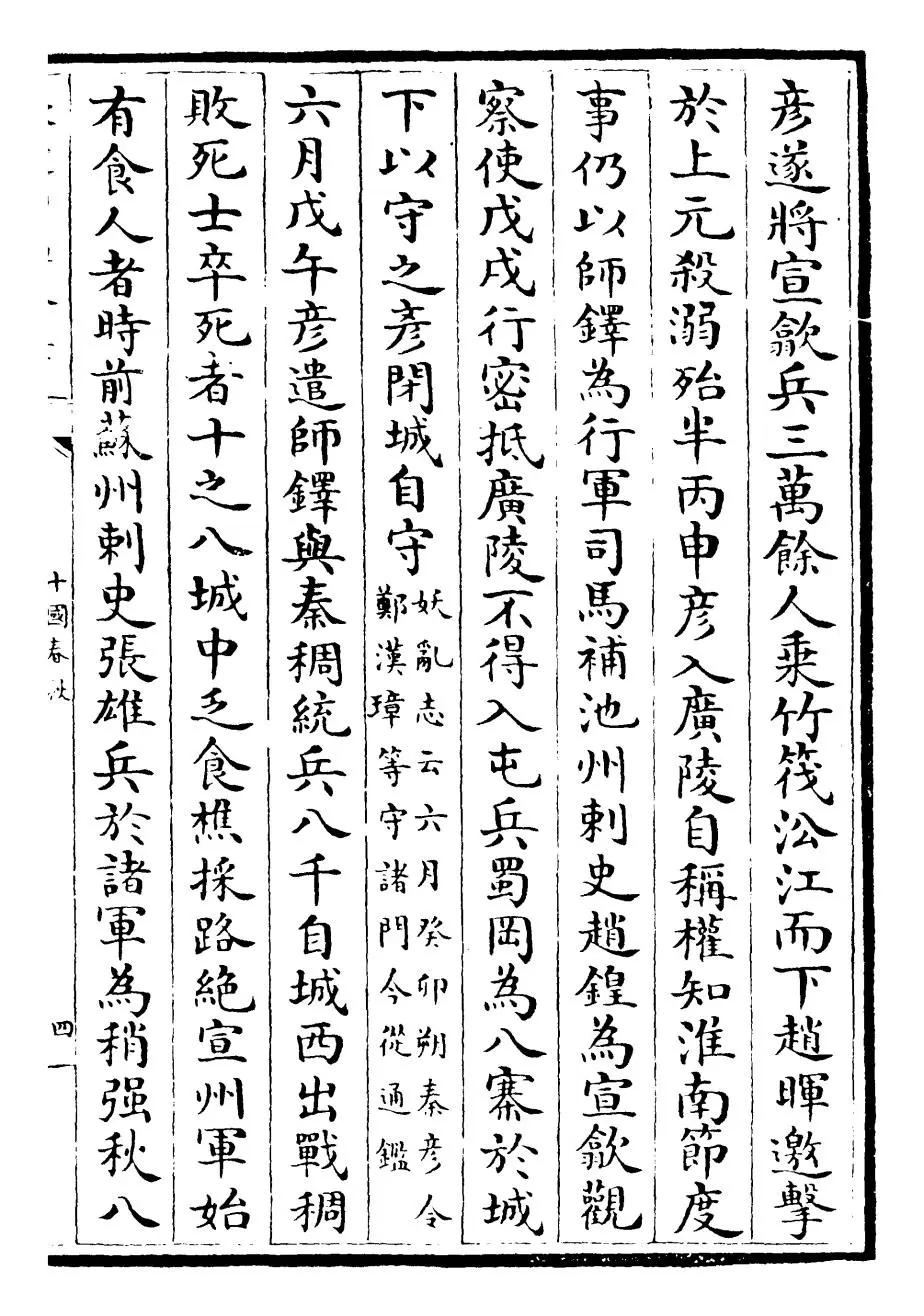 彦遂將宣歙兵三萬餘人乗竹筏㳂江而下趙暉邀擊
於上元殺溺殆半丙申彦入廣陵自稱權知淮南節度
事仍以師鐸為行軍司馬補池州刺史趙鍠為宣歙觀
察使戊戌行密抵廣陵不得入屯兵蜀岡為八寨於城
下以守之彥閉城自守
妖亂志云六月癸卯朔秦彦令
鄭漢璋等守諸門今從通鑑
六月戊午彦遣師鐸與秦稠統兵八千自城西出戰稠
敗死士卒死者十之八城中乏食樵採路絶宣州軍始
有食人者時前蘇州刺史張雄兵於諸軍為稍强秋八
十國春秋
四